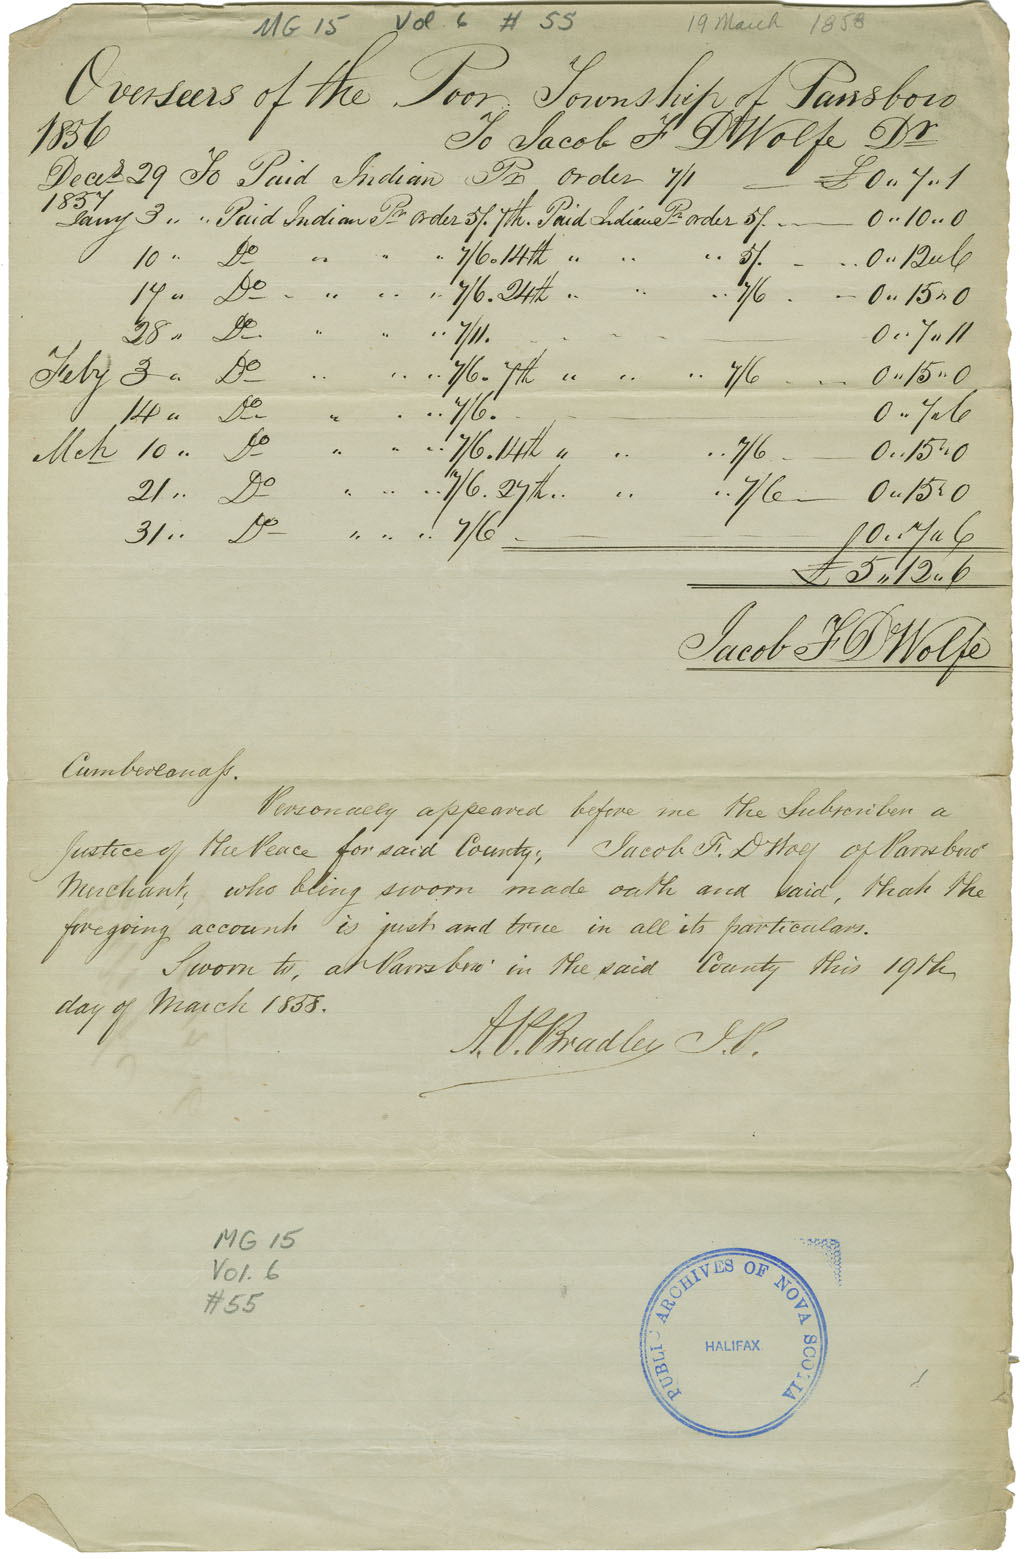 MG 15 Vol. 6 # 55 19 March 1858
Overseers of the Poor Township of Parrsboro
1856 To Jacob F D'Wolfe Dr
Decr 29 To Paid Indian Pr order 7/1 — £ 0 " 7 " 1
1857
Jany 3 " " Paid Indian Pr order 5/. 7th. Paid Indian Pr order 5/. — 0 " 10 " 0
10 " Do " " " 7/6. 14th " " " 5/. — 0 " 12 " 6
17 " Do " " " " 7/6. 24th " " " 7/6 — 0 " 15 " 0
28 " Do " " " 7/11. — 0 " 7 " 11
Feby 3 " Do " " " 7/6. 7th " " " 7/6 — 0 " 15 " 0
14 " Do " " " 7/6. — 0 " 7 " 6
Mch 10 " Do " " " 7/6. 14th " " " 7/6 — 0 " 15 " 0
21 " Do " " " 7/6. 27th " " " 7/6 — 0 " 15 " 0
31 " Do " " " 7/6 — 0 " 7 " 6
£ 5 " 12 " 6
Jacob F D'Wolfe
Cumberland ss.
Personally appeared before me the Subscriber a
Justice of the Peace for said County, Jacob F. D'Wolf of Parrsboro'
Merchant, who being sworn made oath and said, that the
foregoing account is just and true in all its particulars.
Sworn to, at Parrsboro' in the said County this 19th
day of March 1858.
A. P. Bradley J. P.
MG 15
Vol. 6
#55
PUBLIC ARCHIVES OF NOVA SCOTIA
HALIFAX